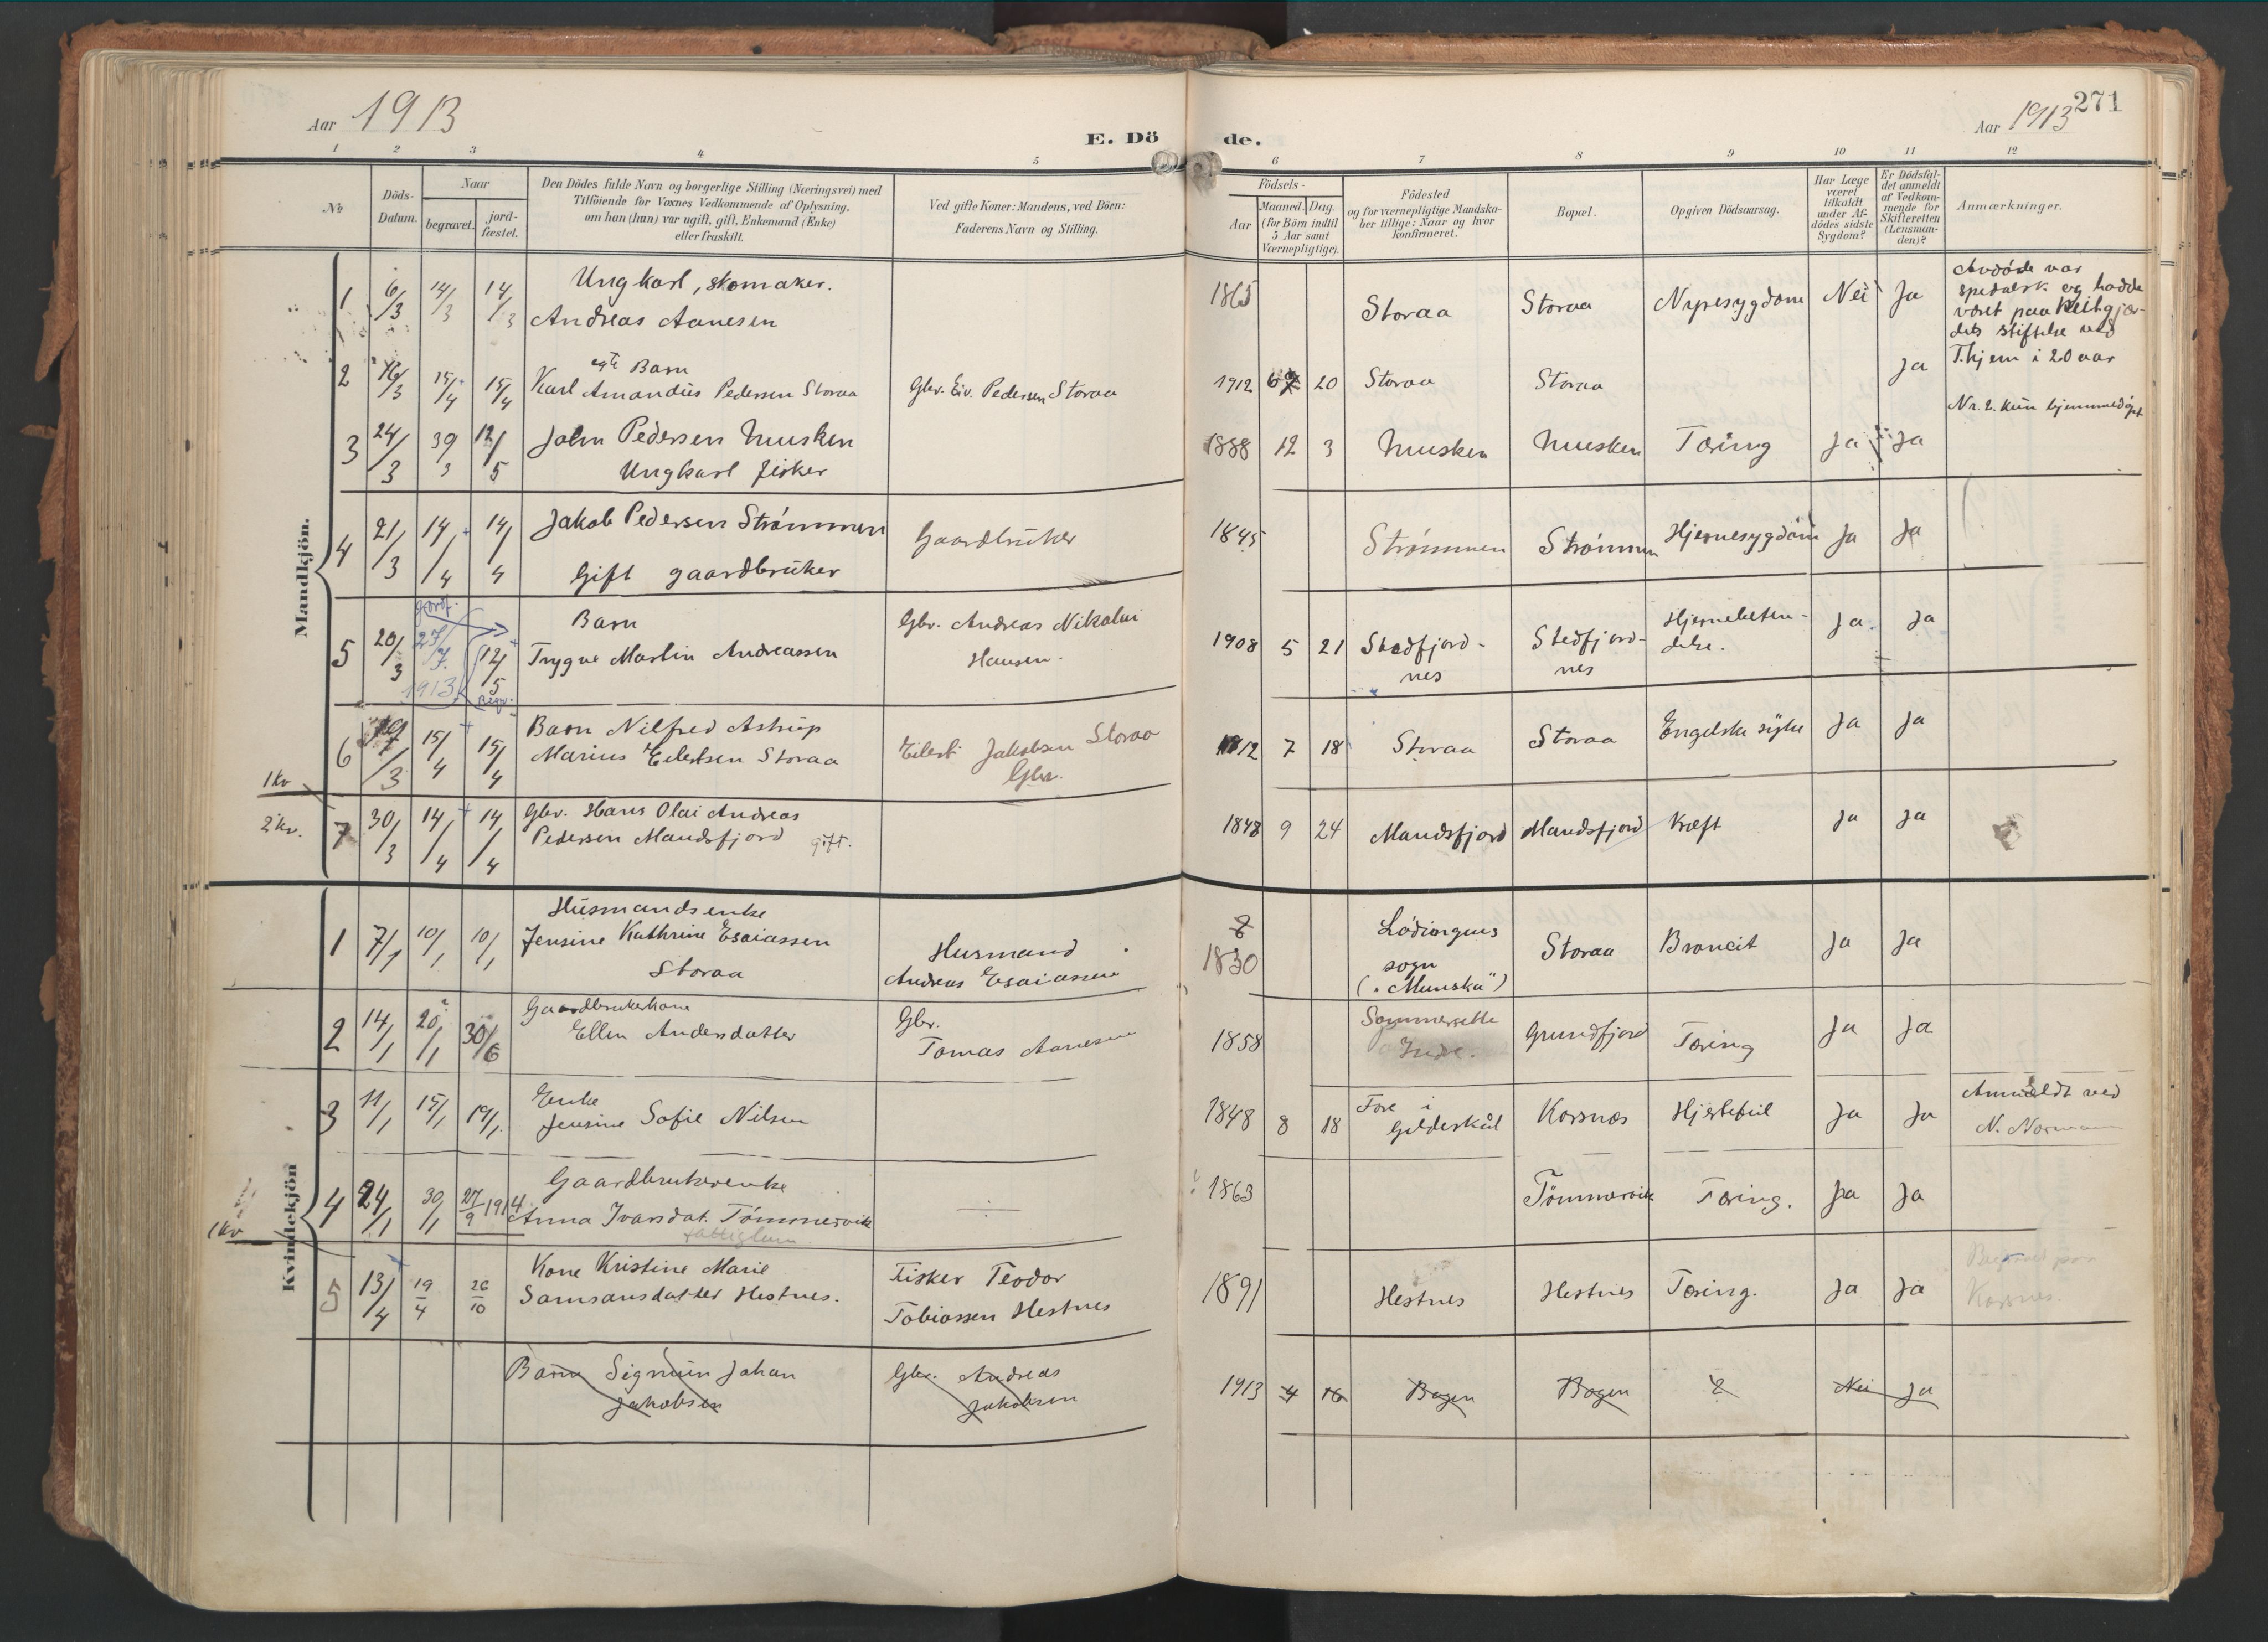 Aar 1913
E. Dö
de.
Aar 1913
271
1 2 3 4 5 6 7 8 9 10 11 12
No
Döds-
Datum.
Naar
begravet.
jord-
fæstet.
Den Dödes fulde Navn og borgerlige Stilling (Næringsvei) med
Tilföiende for Voxnes Vedkommende af Oplysning,
om han (hun) var ugift, gift, Enkemand (Enke)
eller fraskilt.
Ved gifte Koner: Mandens, ved Börn:
Faderens Navn og Stilling.
Födsels-
Aar
Maaned. Dag.
(for Börn indtil
5 Aar samt
Værnepligtige).
Födested
og for værnepligtige Mandska-
ber tillige: Naar og hvor
konfirmeret.
Bopæl.
Opgiven Dödsaarsag.
Har Læge
været
tilkaldt
under Af-
dödes sidste
Sygdom?
Er Dödsfal-
det anmeldt
af Vedkom-
mende for
Skifteretten
(Lensman-
den)?
Anmærkninger.
Mandkjön.
1 6/3 14/3 14/3 Ungkarl, skomaker.
Andreas Aanesen
1865 Storaa Storaa Nyresygdom Nei Ja
Avdöde var
spedalsk og hadde
været paa Reitgjær-
dets stiftelse ved
T.hjem i 20 aar
2 16/3 15/4 15/4 egte Barn
Karl Amandus Pedersen Storaa
Gbr. Eiv. Pedersen Storaa
1912 6 20 Storaa Storaa Ja
Nr. 2. kun hjemmedöpt
3 24/3 30/3 12/5 John Pedersen Musken
Ungkarl fisker
1888 12 3 Musken Musken Tæring Ja Ja
4 21/3 14/4 14/4 Jakob Pedersen Strømmen
Gift gaardbruker
Gaardbruker
1845 Strømmen Strømmen Hjernesygdom Ja Ja
jordf.
5 20/3 27/7. 1913 12/5 Begr.
Barn
Trygve Martin Andreassen
Gbr. Andreas Nikolai
Hansen.
1908 5 21 Stedfjord-
nes
Stedfjord-
nes
Hjernebeten-
delse.
Ja. Ja
6 15/4 15/4 Barn Nilfred Astrup
Marius Eilertsen Storaa
Eilert Jakobsen Storaa
Gbr.
1912 7 18 Storaa Storaa Engelske syke Ja Ja
1 kv
2 kv.
7 30/3 14/4 14/4 Gbr. Hans Olai Andreas
Pedersen Mandsfjord gift.
1848 9 24 Mandsfjord Mandsfjord Kræft Ja Ja
Kvindekjön
1 7/1 10/1 10/1 Husmandsenke
Jensine Kathrine Esaiassen
Storaa
Husmand
Andreas Esaiassen
?
1830
Lødingens
sogn
("Munska")
Storaa Broncit Ja Ja
2 14/1 20/1 30/6 Gaardbrukerkone
Ellen Andersdatter
Gbr.
Tomas Aanesen
1858 Sommersette
Indre.
Grundfjord Tæring Ja Ja
3 11/1 15/1 19/1. Enke
Jensine Sofie Nilsen
1848 8 18 Fore i
Gildeskål
Korsnes Hjertefeil Ja Ja
Anmeldt ved
N. Norman
4 24/1 30/1 27/9 1914 Gaardbrukerenke
Anna Ivarsdat. Tömmervik
fattiglem
1863 Tömmervik Tæring. Ja Ja
1 kv
5 13/4 19/4 26/10 Kone Kristine Marie
Samsonsdatter Hestnes.
Fisker Teodor
Tobiassen Hestnes
1891 Hestnes Hestnes Tæring. Ja Ja
Begravet paa
Korsnes.
Barn Sigmun Johan
Jakobsen
Gbr. Andreas
Jakobsen
1913 4 16 Bogen Bogen ? Nei Ja